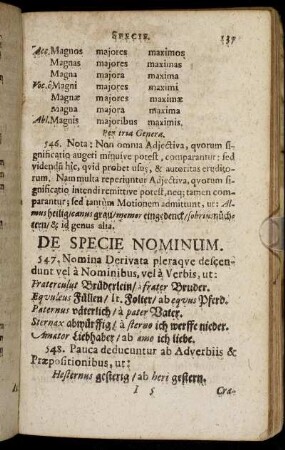 SPECIE. 137
Acc. Magnos majores maximos
Magnas majores maximas
Magna majora maxima
Voc. ô Magni majores maximi
Magnæ majores maximæ
Magna majora maxima
Abl. Magnis majoribus maximis.
Per tria Genera.
546. Nota: Non omnia Adjectiva, qvorum si-
gnificatio augeri minuive potest, comparantur: sed
videndũ hîc, quid probet usus, & autoritas eruditо-
rum. Nam multa reperiuntur Adjectiva, qvorum si-
gnificatio intendi remittive potest, neq; tamen com-
parantur; sed tantùm Motionem admittunt, ut: Al-
mus heilig/canus grau/memor eingedenck/sobrius nüch-
tern/ & id genus alia.
DE SPECIE NOMINUM.
547. Nomina Derivata pleraqve descen-
dunt vel à Nominibus, vel à Verbis, ut:
Fraterculus Brüderlein/ à frater Bruder.
Eqvuleus Füllen/ It. Folter/ ab eqvus Pferd.
Paternus väterlich/ à pater Vater.
Sternax abwürffig/ à sterno ich werffe nieder.
Amator Liebhaber/ ab amo ich liebe.
548. Pauca deducuntur ab Adverbiis &
Præpositionibus, ut:
Hesternus gesterig/ ab heri gestern.
I 5 Cra-